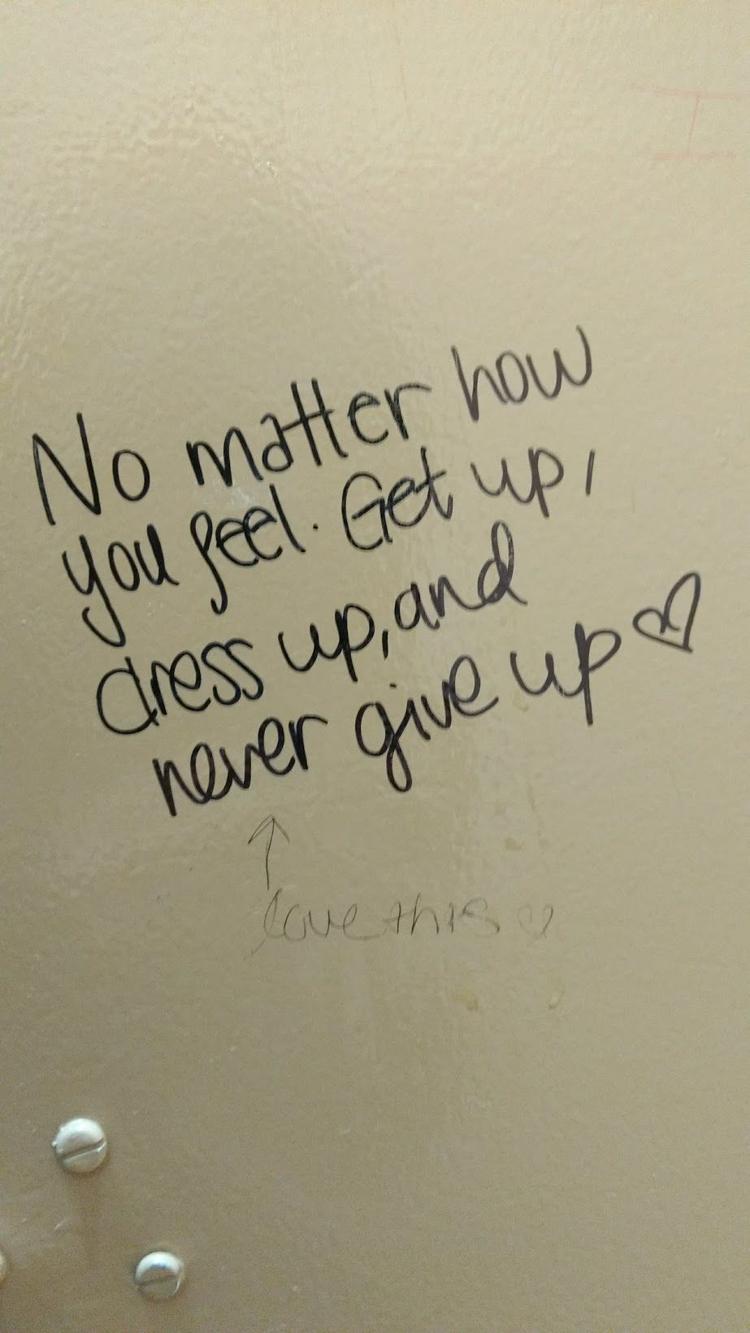 No matter how
you feel. Get up,
dress up, and
never give up ♡
↑
love this ♡